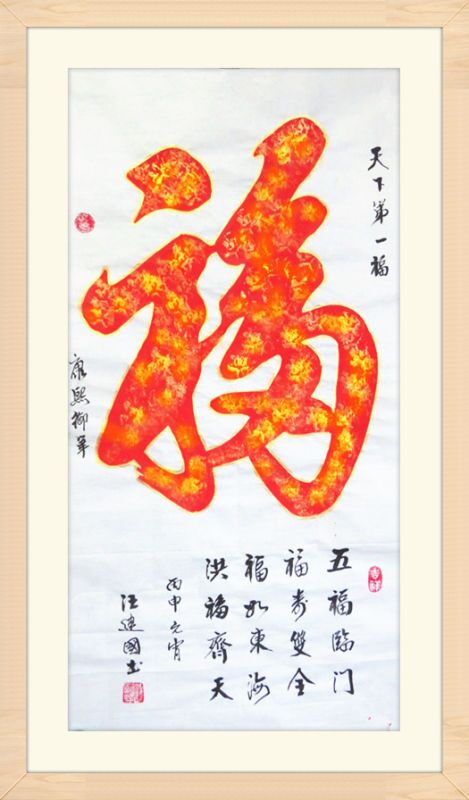 天下第一福
福
康熙御筆
五福臨门
福寿雙全
福如東海
洪福齊天
丙申元宵
汪建國书
吉祥